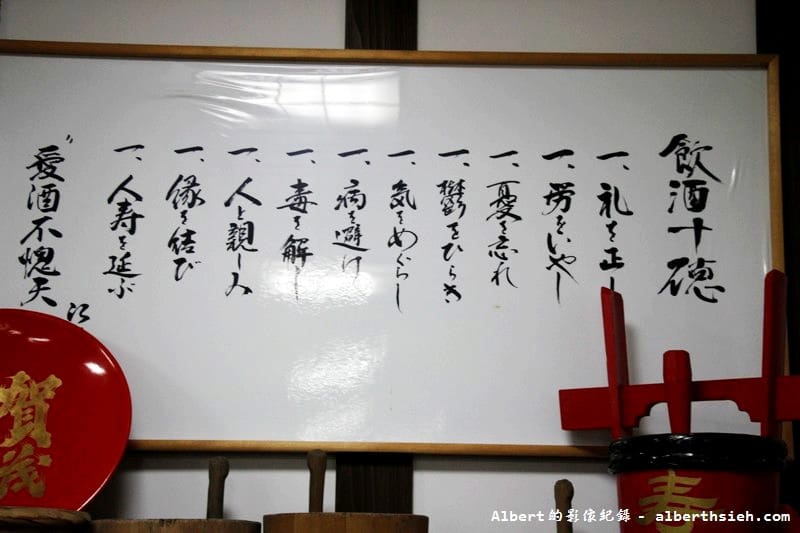 飲酒十徳
一、礼を正し
一、労をいやし
一、憂を忘れ
一、鬱をひらき
一、気をめぐらし
一、病を避け
一、毒を解し
一、人と親しみ
一、縁を結び
一、人寿を延ぶ
〝愛酒不愧天〟
賀茂
寿
Albert的影像紀錄 - alberthsieh.com